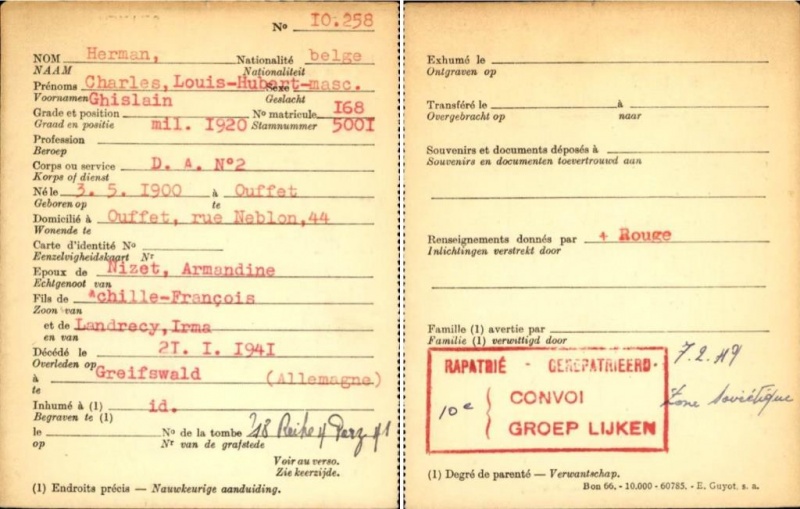 No 10.258
NOM Herman, Nationalité belge
NAAM Nationaliteit
Prénoms Charles, Louis-Hubert- Sexe masc.
Voornamen Ghislain Geslacht
Grade et position mil. 1920 No matricule 168
Graad en positie Stamnummer 5001
Profession
Beroep
Corps ou service D. A. N°2
Korps of dienst
Né le 3. 5. 1900 à Ouffet
Geboren op te
Domicilié à Ouffet, rue Neblon,44
Wonende te
Carte d'identité No
Eenzelvigheidskaart Nr
Epoux de Nizet, Armandine
Echtgenoot van
Fils de Achille-François
Zoon van
et de Landrecy,Irma
en van
Décédé le 21. I. 1941
Overleden op
à Greifswald (Allemagne)
te
Inhumé à (1) id.
Begraven te (1)
le No de la tombe 718 Reihe 4
op Nr van de grafstede
Voir au verso.
Zie keerzijde.
(1) Endroits précis — Nauwkeurige aanduiding.
Exhumé le
Ontgraven op
Transféré le à
Overgebracht op naar
Souvenirs et documents déposés à
Souvenirs en documenten toevertrouwd aan
Renseignements donnés par + Rouge
Inlichtingen verstrekt door
Famille (1) avertie par
Familie (1) verwittigd door
RAPATRIÉ - GEREPATRIEERD. 7.2.49
10e CONVOI Zone Soviétique
GROEP LIJKEN
(1) Degré de parenté — Verwantschap.
Bon 66. - 10.000 - 60785. - E. Guyot, s. a.